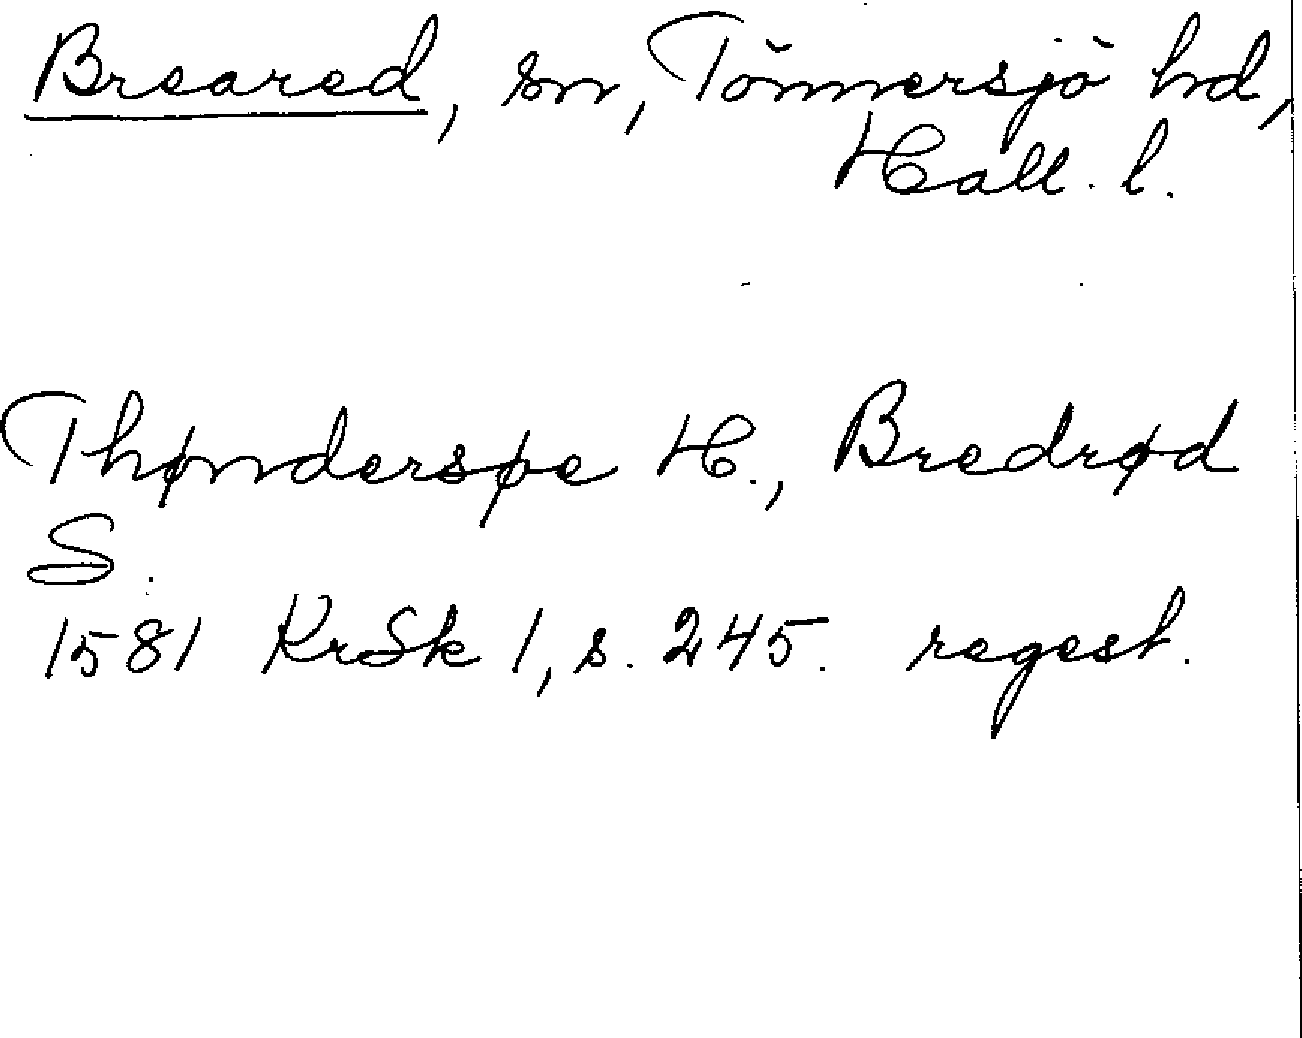 Breared, sn, Tönnersjö hd,
Hall. l.
Thøndersøe H., Bredrød
S.
1581 KrSk 1, s. 245. regest.